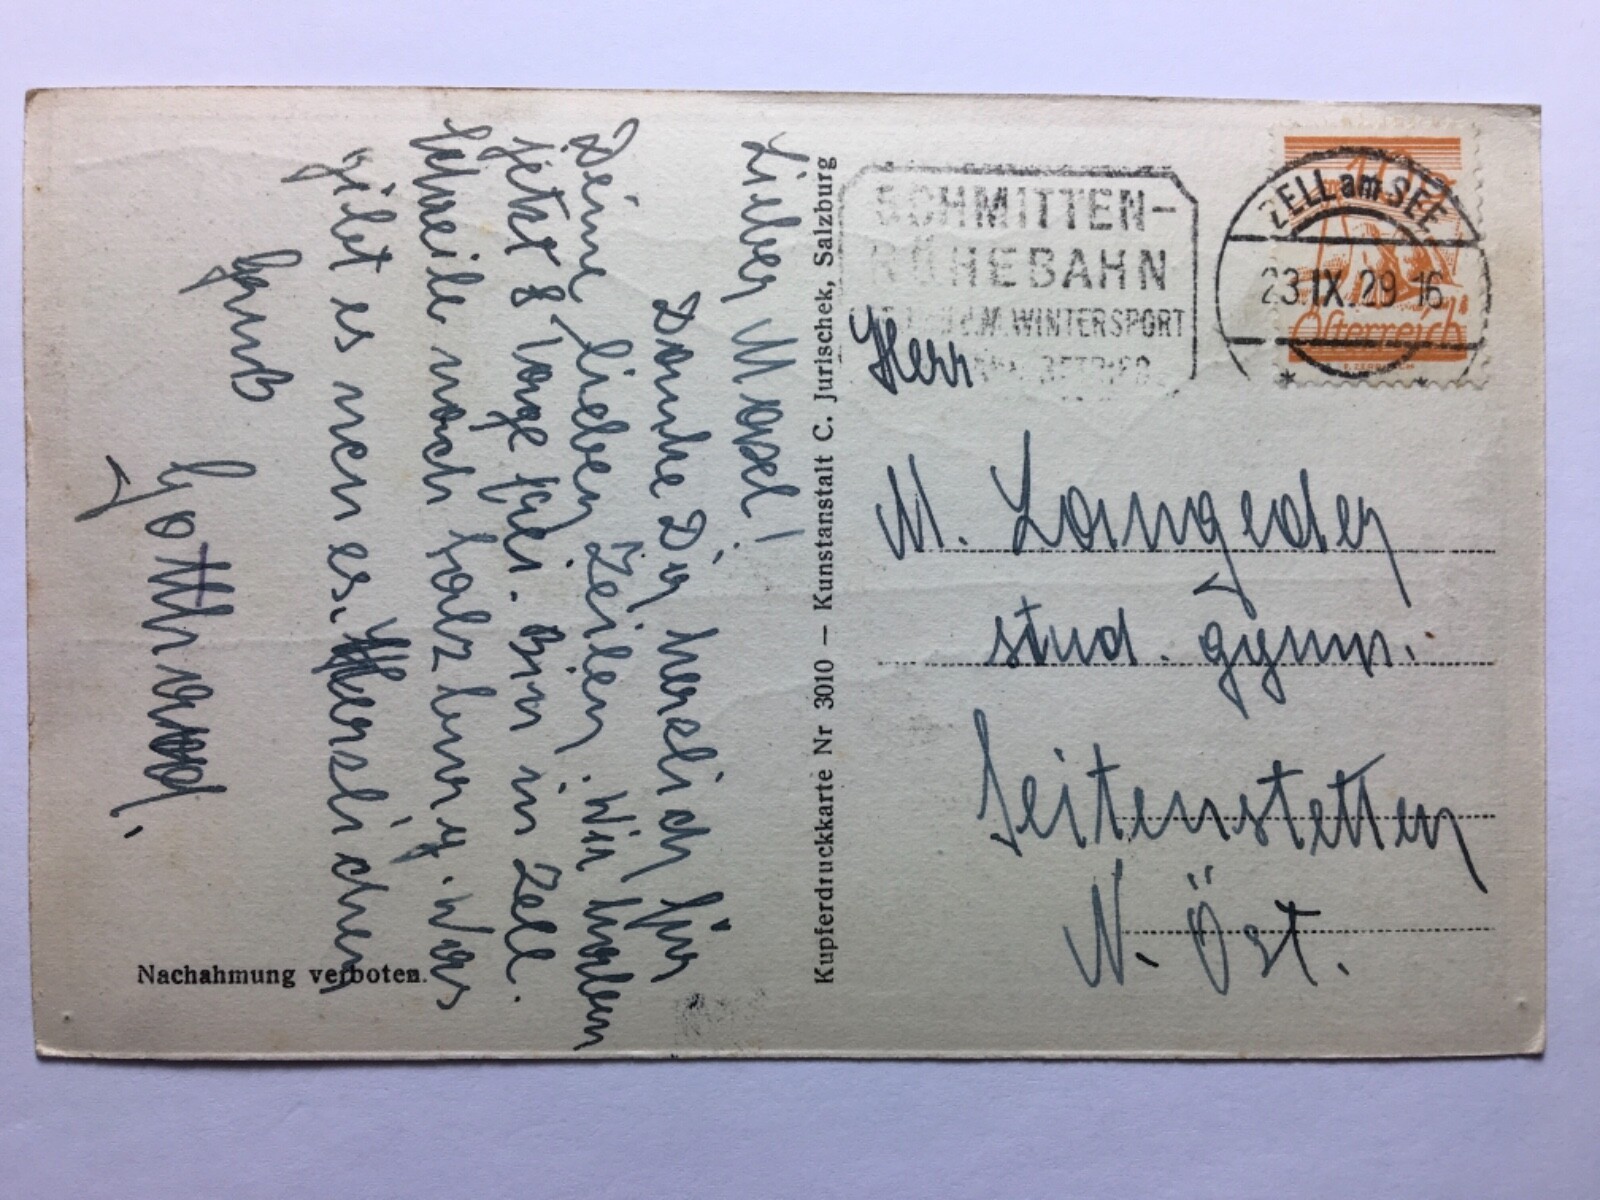 Lieber Maxl!
Danke Dir herzlich für
Deine lieben Zeilen. Wir haben
jetzt 8 Tage frei. Bin in Zell.
schreibe nach Salzburg. Was
gibt es neues. Herzlichen
Gruß
Gotthard.
Nachahmung verboten.
Kupferdruckkarte Nr 3010 — Kunstanstalt C. Jurischek, Salzburg
SCHMITTEN-
HÖHEBAHN
WINTERSPORT
ZELL am SEE
23.IX.29 16
10
Österreich
Herr
M. Langeder
stud. gymn.
Seitenstetten
N. Öst.